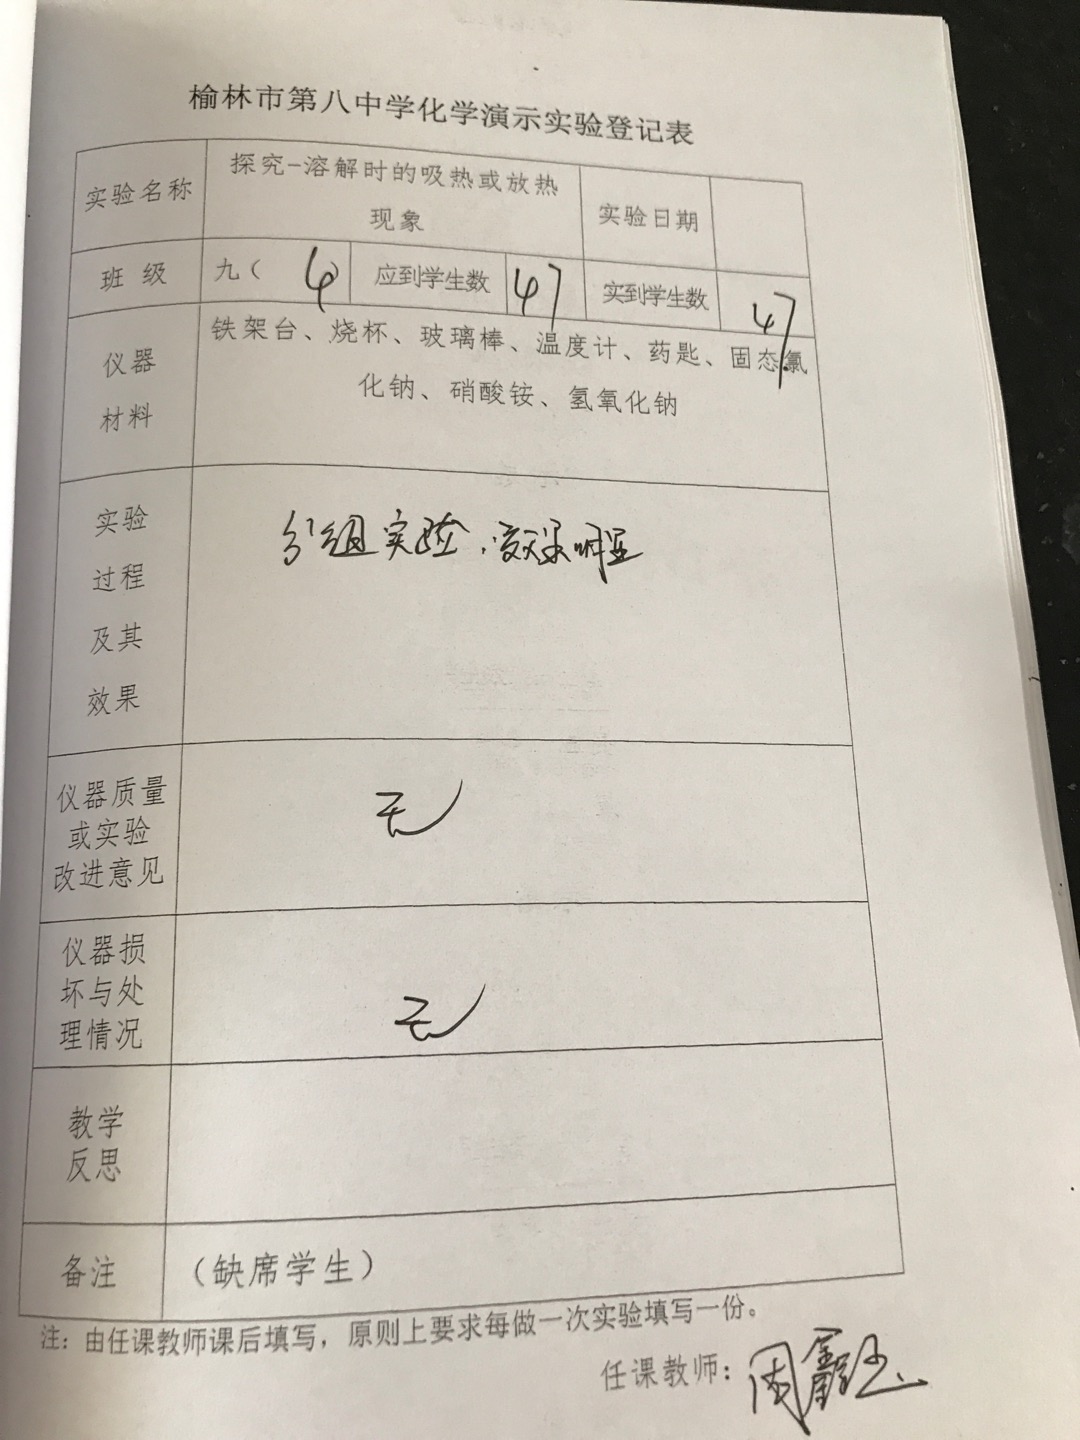 榆林市第八中学化学演示实验登记表
实验名称
探究-溶解时的吸热或放热
现象
实验日期
班 级
九( 6)
应到学生数
47
实到学生数
47
仪器
材料
铁架台、烧杯、玻璃棒、温度计、药匙、固态氯
化钠、硝酸铵、氢氧化钠
实验
过程
及其
效果
分组实验，效果明显
仪器质量
或实验
改进意见
无
仪器损
坏与处
理情况
无
教学
反思
备注
（缺席学生）
注：由任课教师课后填写，原则上要求每做一次实验填写一份。
任课教师：周